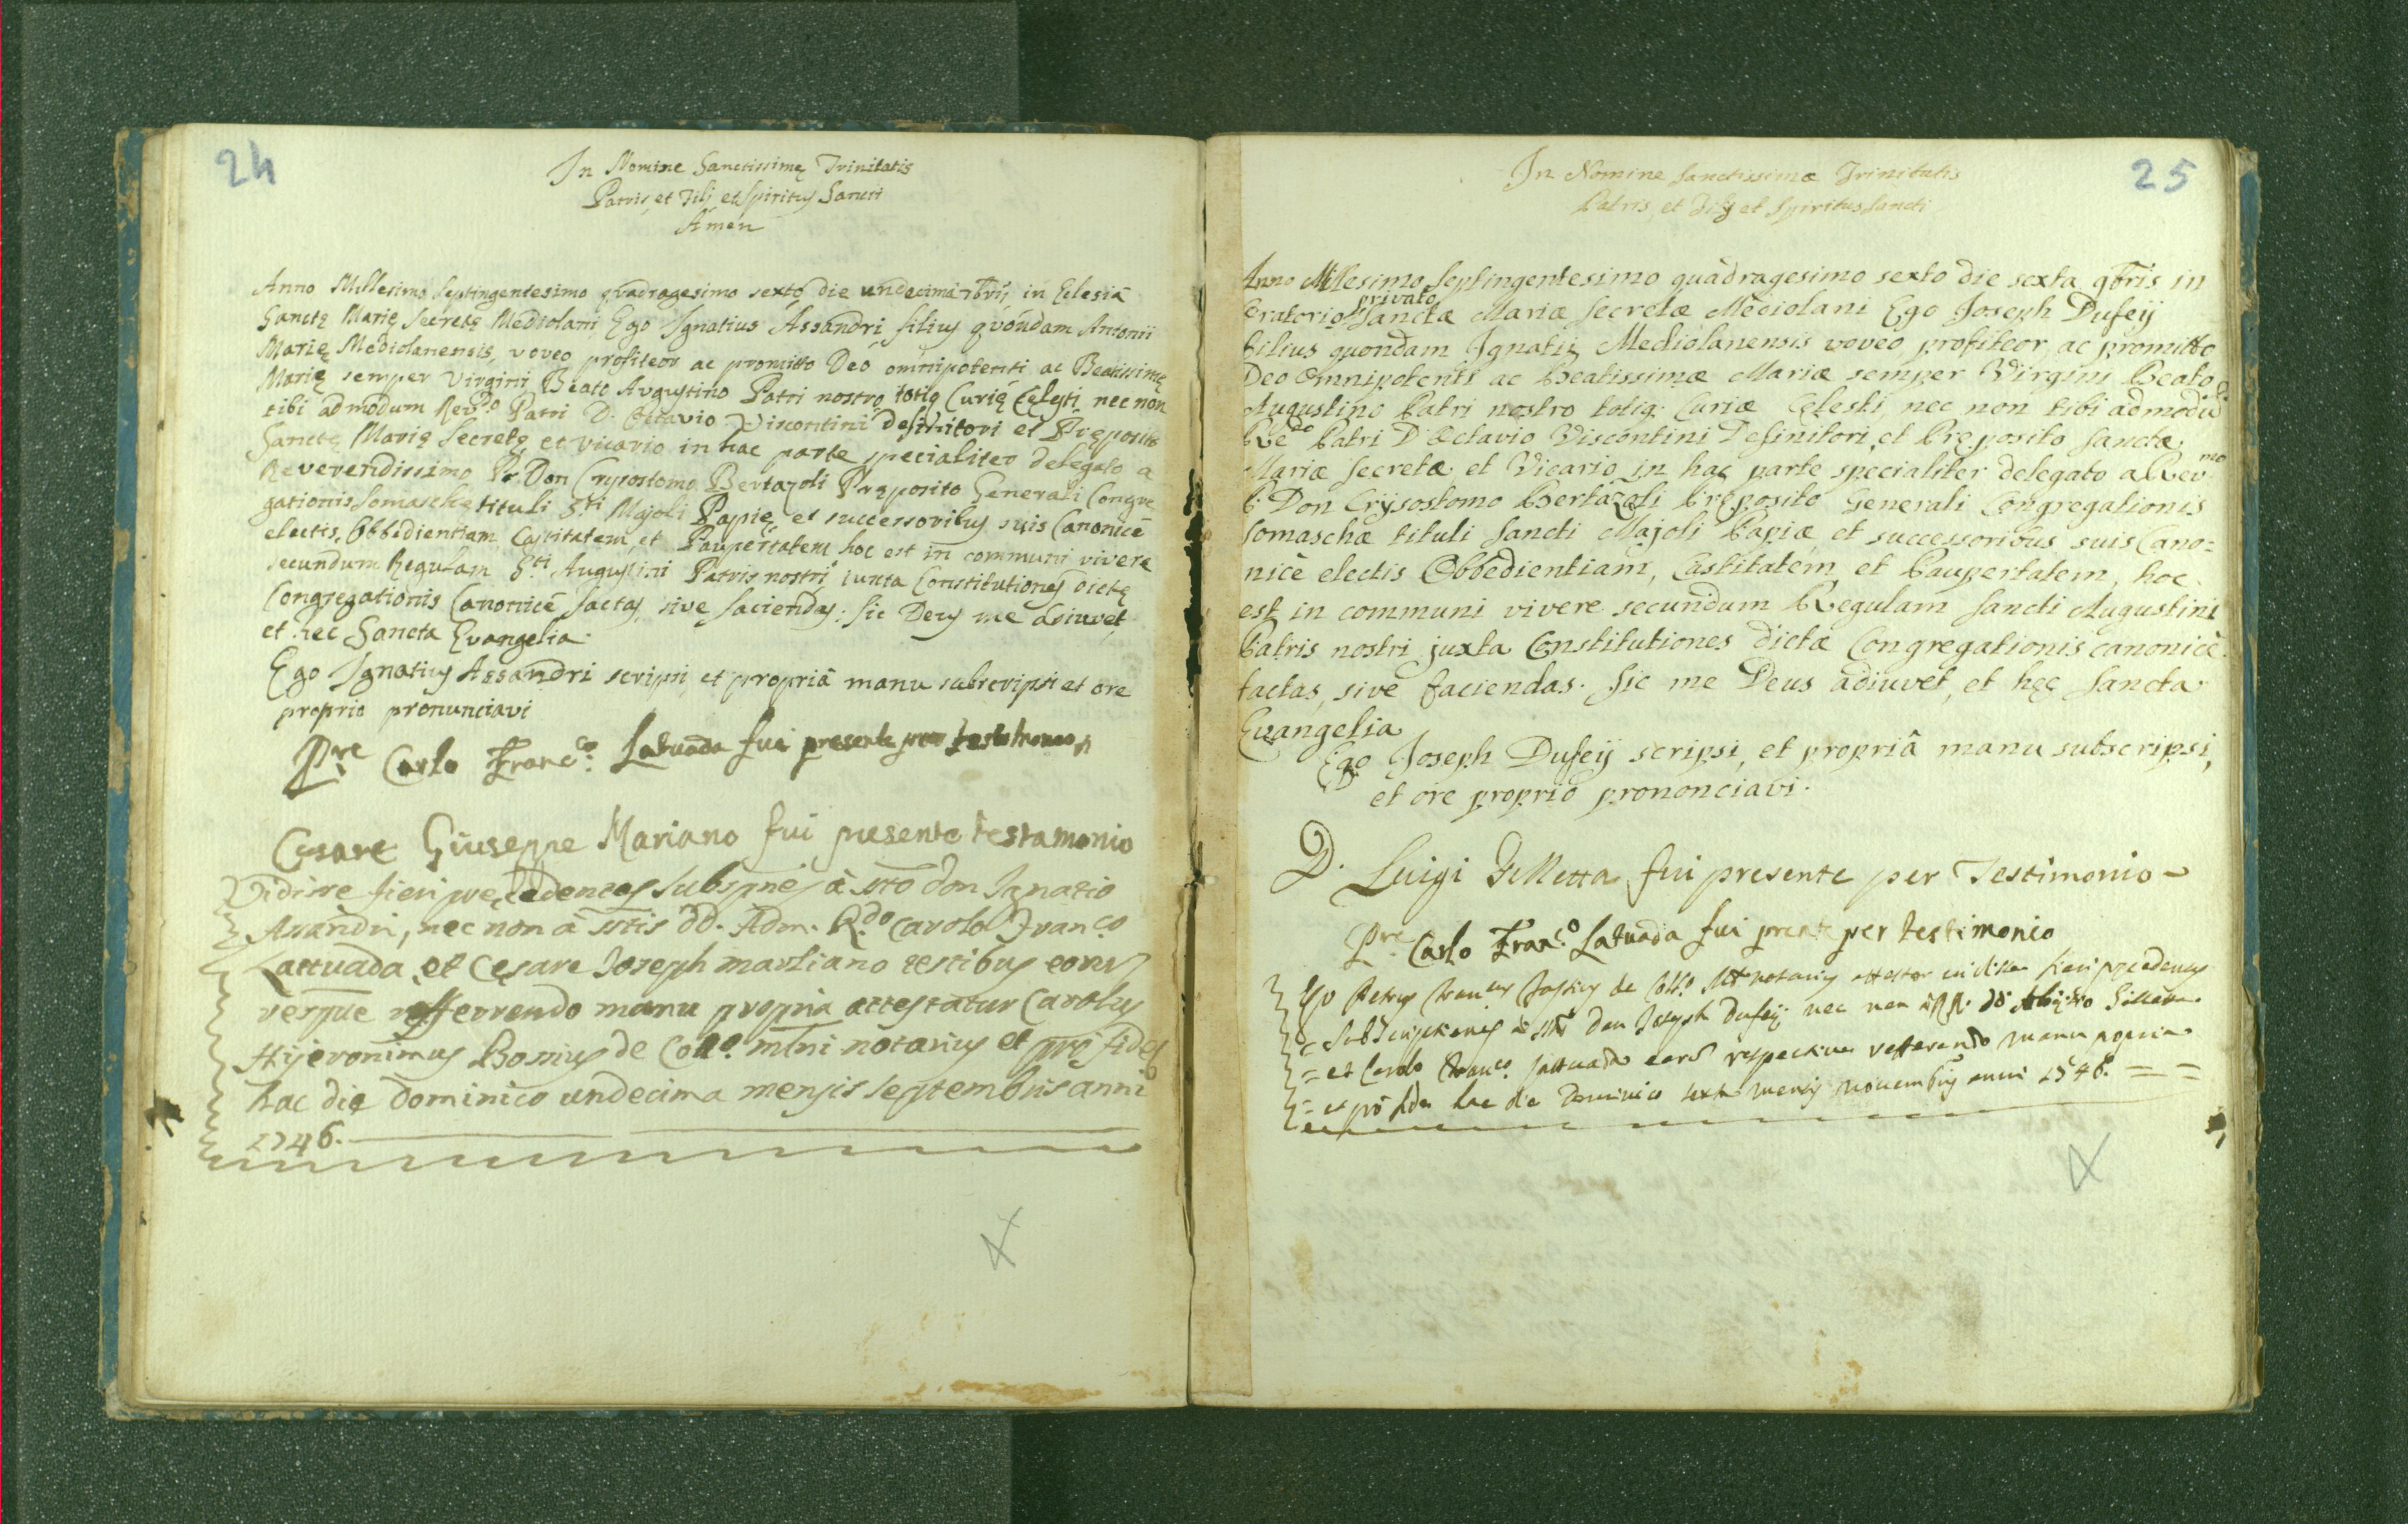 24
In Nomine Sanctissimę Trinitatis
Patris, et Filij et Spiritus Sancti
Amen
Anno Millesimo Septingentesimo quadragesimo sexto die undecima 7bris in Eclesiâ
Sanctę Marię Secretę Mediolani Ego Ignatius Assandri filius quondam Antonii
Marię Mediolanensis, voveo profiteor ac promitto Deo omnipotenti ac Beatissimę
Marię semper Virgini Beato Augustino Patri nostro totiq Curię Cęlesti nec non
tibi admodum Revdo Patri D. Octavio Viscontini definitori et Pręposito
Sanctę Marię Secretę et vicario in hac parte specialiter delegato a
Reverendissimo Pr Don Crysostomo Bertazoli Pręposito Generali Congre
gationis Somaschę tituli Sti Majoli Papię et successoribus suis Canonicè
electis, Obbedientiam Castitatem, et Paupertatem hoc est in communi vivere
secundum Regulam Sti Augustini Patris nostri iuxta Constitutiones dictę
Congregationis Canonicè factas, sive faciendas. Sic Deus me adiuvet,
et hec Sancta Evangelia.
Ego Ignatius Assandri scripsi, et propriâ manu subscripsi et ore
proprio pronunciavi
Pre Carlo Franco. Latuada fui presente per
Cesare Giuseppe Mariano fui presente testamonio
Vidisse fieri precedentes Subspnes à sto don Ignatio
Assandri, nec non à sttis dd. Adm. Rdo Carolo Franco
Lattuada, et Cesare Joseph marliano testibus eorus
verque refferrendo manu propria attestatur Carolus
Hijeronimus Bosius de Collo. mlni notarius et pro fide
hac die Dominico undecima mensis Septembris anni
1746.
25
In Nomine Sanctissimæ Trinitatis
Patris, et Filij et Spiritus Sancti
Anno Millesimo Septingentesimo quadragesimo sexto die sexta 9bris in
Oratorio privato Sanctæ Mariæ Secretæ Mediolani Ego Joseph Dufeij
filius quondam Ignatii Mediolanensis voveo, profiteor, ac promitto
Deo Omnipotenti ac Beatissimæ Mariæ semper Virgini Beato
Augustino Patri nostro totiq. Curiæ Cęlesti, nec non tibi admodũ
Rdo Patri D. Octavio Viscontini Definitori, et Pręposito Sanctæ
Mariæ Secretæ et Vicario in hac parte specialiter delegato a Revmo
P. Don Crysostomo Bertazoli Pręposito Generali Congregationis
Somaschæ tituli Sancti Majoli Papiæ et successoribus suis Cano=
nicè electis Obbedientiam, Castitatem, et Paupertatem, hoc
est in communi vivere secundum Regulam Sancti Augustini
Patris nostri juxta Constitutiones dictæ Congregationis canonicè
factas, sive faciendas. Sic me Deus adiuvet, et hęc Sancta
Evangelia
Ego Joseph Dufeij scripsi, et propriâ manu subscripsi,
et ore proprio prononciavi.
D. Luigi Gilletta fui presente per Testimonio
Pre Carlo Franco. Latuada fui prente per testimonio
Ego Petrus de Collo. Mli notarius attestor vidisse fieri precedentes
Subscriptiones à stto Don Joseph Dufeij nec non à RR. dd Gilletta
= et Carolo Franco. Lattuada eorus respective refferendo manu propria
= et pro fide hac die Dominico sexta mensis novembris anni 1746. = =